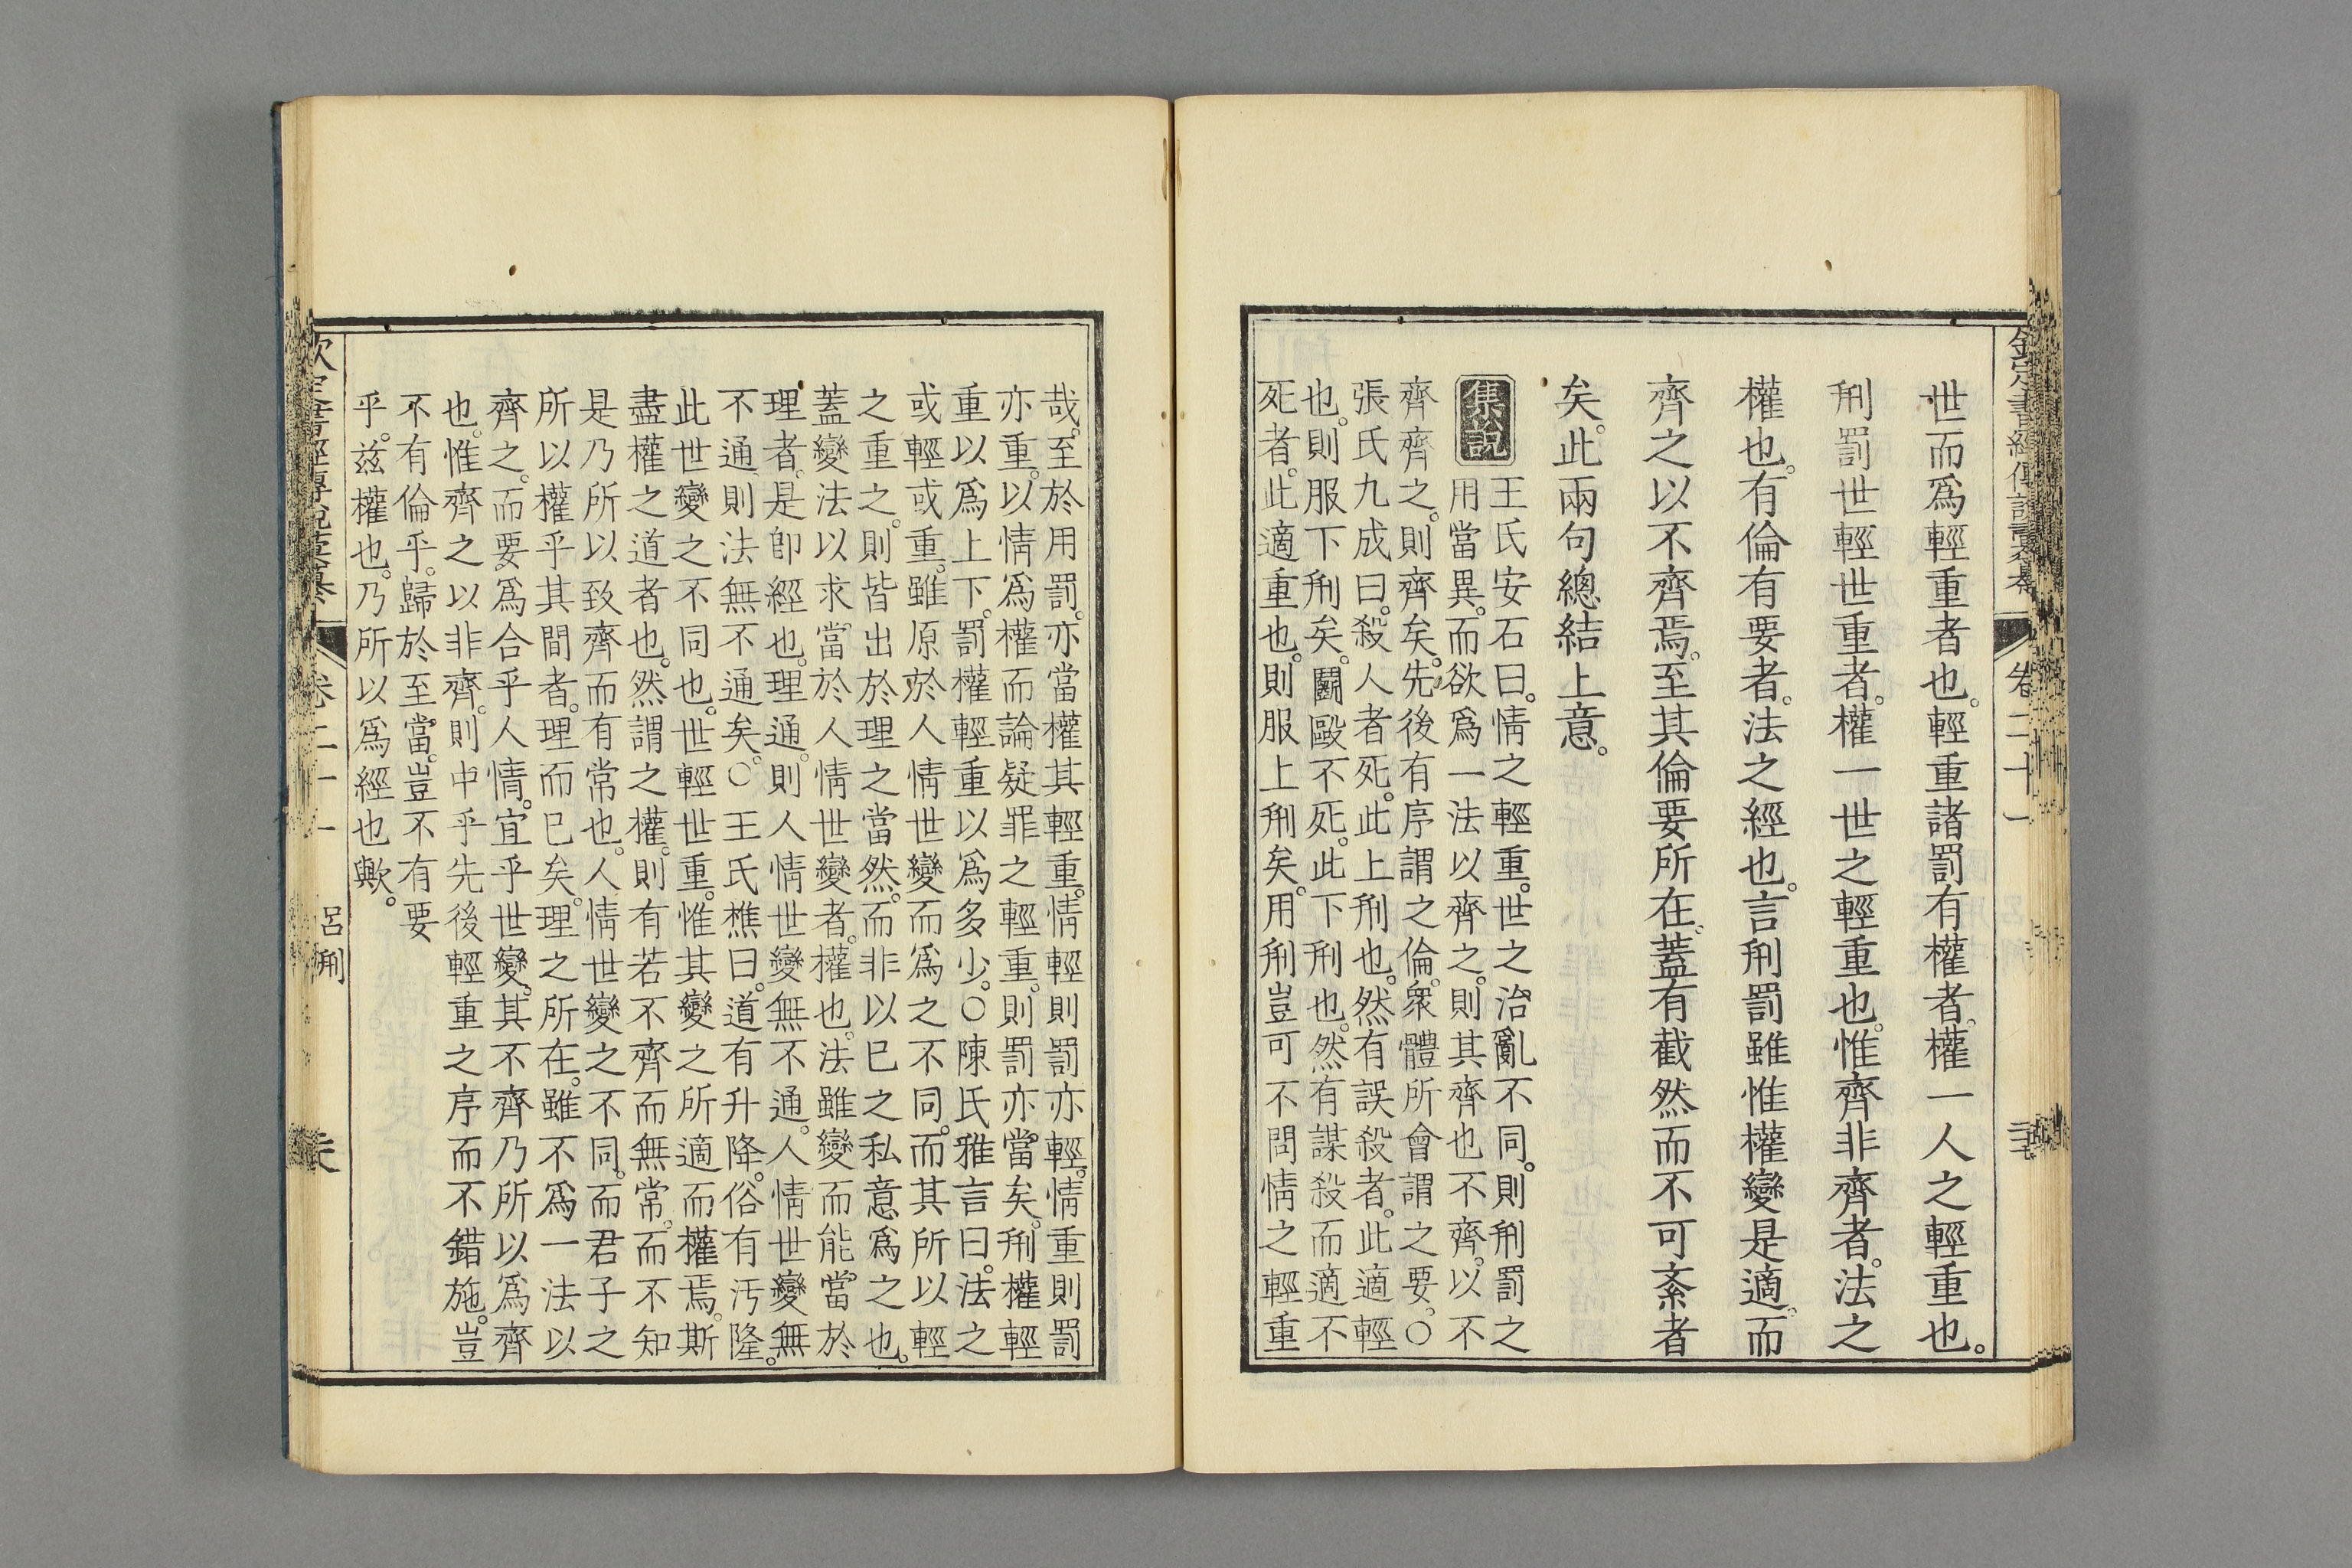 世而爲輕重者也。輕重諸罰有權者。權一人之輕重也。
刑罰世輕世重者。權一世之輕重也。惟齊非齊者。法之
權也。有倫有要者。法之經也。言刑罰雖惟權變是適。而
齊之以不齊焉。至其倫要所在。蓋有截然而不可紊者
矣。此兩句總結上意。
集說
王氏安石曰。情之輕重。世之治亂不同。則刑罰之
用當異。而欲爲一法以齊之。則其齊也不齊。以不
齊齊之。則齊矣。先後有序謂之倫。衆體所會謂之要。○
張氏九成曰。殺人者死。此上刑也。然有誤殺者。此適輕
也。則服下刑矣。鬬毆不死。此下刑也。然有謀殺而適不
死者。此適重也。則服上刑矣。用刑豈可不問情之輕重
哉。至於用罰。亦當權其輕重。情輕則罰亦輕。情重則罰
亦重。以情爲權而論疑罪之輕重。則罰亦當矣。刑權輕
重以爲上下。罰權輕重以爲多少。○陳氏雅言曰。法之
或輕或重。雖原於人情世變而爲之不同。而其所以輕
之重之。則皆出於理之當然。而非以已之私意爲之也。
蓋變法以求。當於人情世變者。權也。法雖變而能。當於
理者。是卽經也。理通。則人情世變無不通。人情世變無
不通則法無不通矣。○王氏樵曰。道有升降。俗有汚隆。
此世變之不同也。世輕世重。惟其變之所適而權焉。斯
盡權之道者也。然謂之權。則有若不齊而無常。而不知
是乃所以致齊而有常也。人情世變之不同。而君子之
所以權乎其間者。理而已矣。理之所在。雖不爲一法以
齊之。而要爲合乎人情。宜乎世變。其不齊乃所以爲齊
也。惟齊之以非齊。則中乎先後輕重之序而不錯施。豈
不有倫乎。歸於至當。豈不有要
乎。茲權也。乃所以爲經也歟。
欽定書經傳說彙纂
卷二十一
呂刑